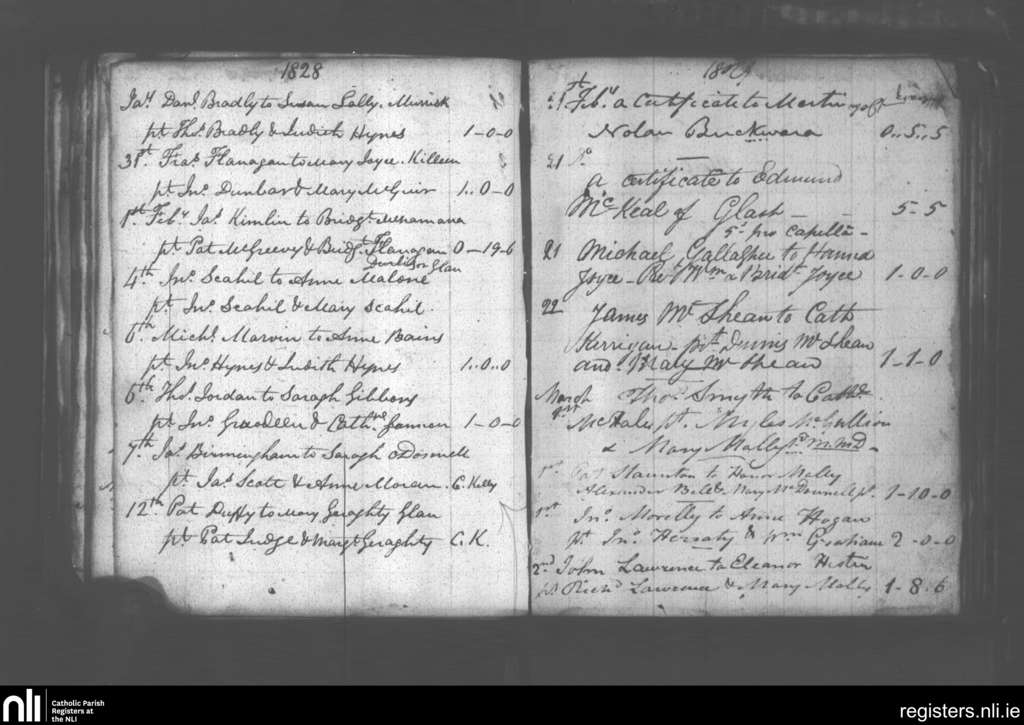 1828
Jay. Danl. Bradly to Susan Lally. Murrisk
pt. Thos. Bradly & Judith Hynes 1-0-0
31st. Fras. Flanagan to Mary Joyce. Killeen
pt. Jno. Dunbar & Mary McGuir 1..0-0
1st Feby. Jas. Kimlin to Bridgt. McNamara
pt. Pat McGreevy & Bridgt. Flanagan 0-19-6
4th. Jno. Scahil to Anne Malone
pt. Jno. Scahil & Mary Scahil.
6th Michl. Marvin to Anne Bains
pt. Jno. Hynes & Judith Hynes 1..0..0
6th Thos. Jordan to Saragh Gibbons
pt. Jno. & Cathne. 1-0-0
7th. Jas. Birmingham to Saragh ODonnell
pt. Jas. Scott & Anne Moran. C. Kelly
12th. Pat Duffy to Mary Geraghty Glan
pt. Pat Judge & Margt Geraghty C.K.
21st Feby. a Certficate to Martin
Nolan 0..5..5
21 Do
a certificate to Edmund
McKeal of Glash - - 5-5
5- pro capella -
21 Michael Gallagher to Hanna
Joyce - Wm & Bridt Joyce 1-0-0
22 James Mc Shean to Cath
Kerrigan - pt Dennis Mc Shean
and Mary Mc Shean 1-1-0
March 1st Thos Smyth to Cathe
McHale pt. Myles
& Mary Mally
1st Pat Staunton to Honor Mally
Alexander Bell & Mary McDonnell pt. 1-10-0
1st Jno. Morelly to Anne Hogan
pt Jno. & Wm Graham 2-0-0
2nd John Lawrence to Eleanor Hestin
pt. Richd Lawrence & Mary Mally 1-8-6
nli
Catholic Parish
Registers at
the NLI
registers.nli.ie